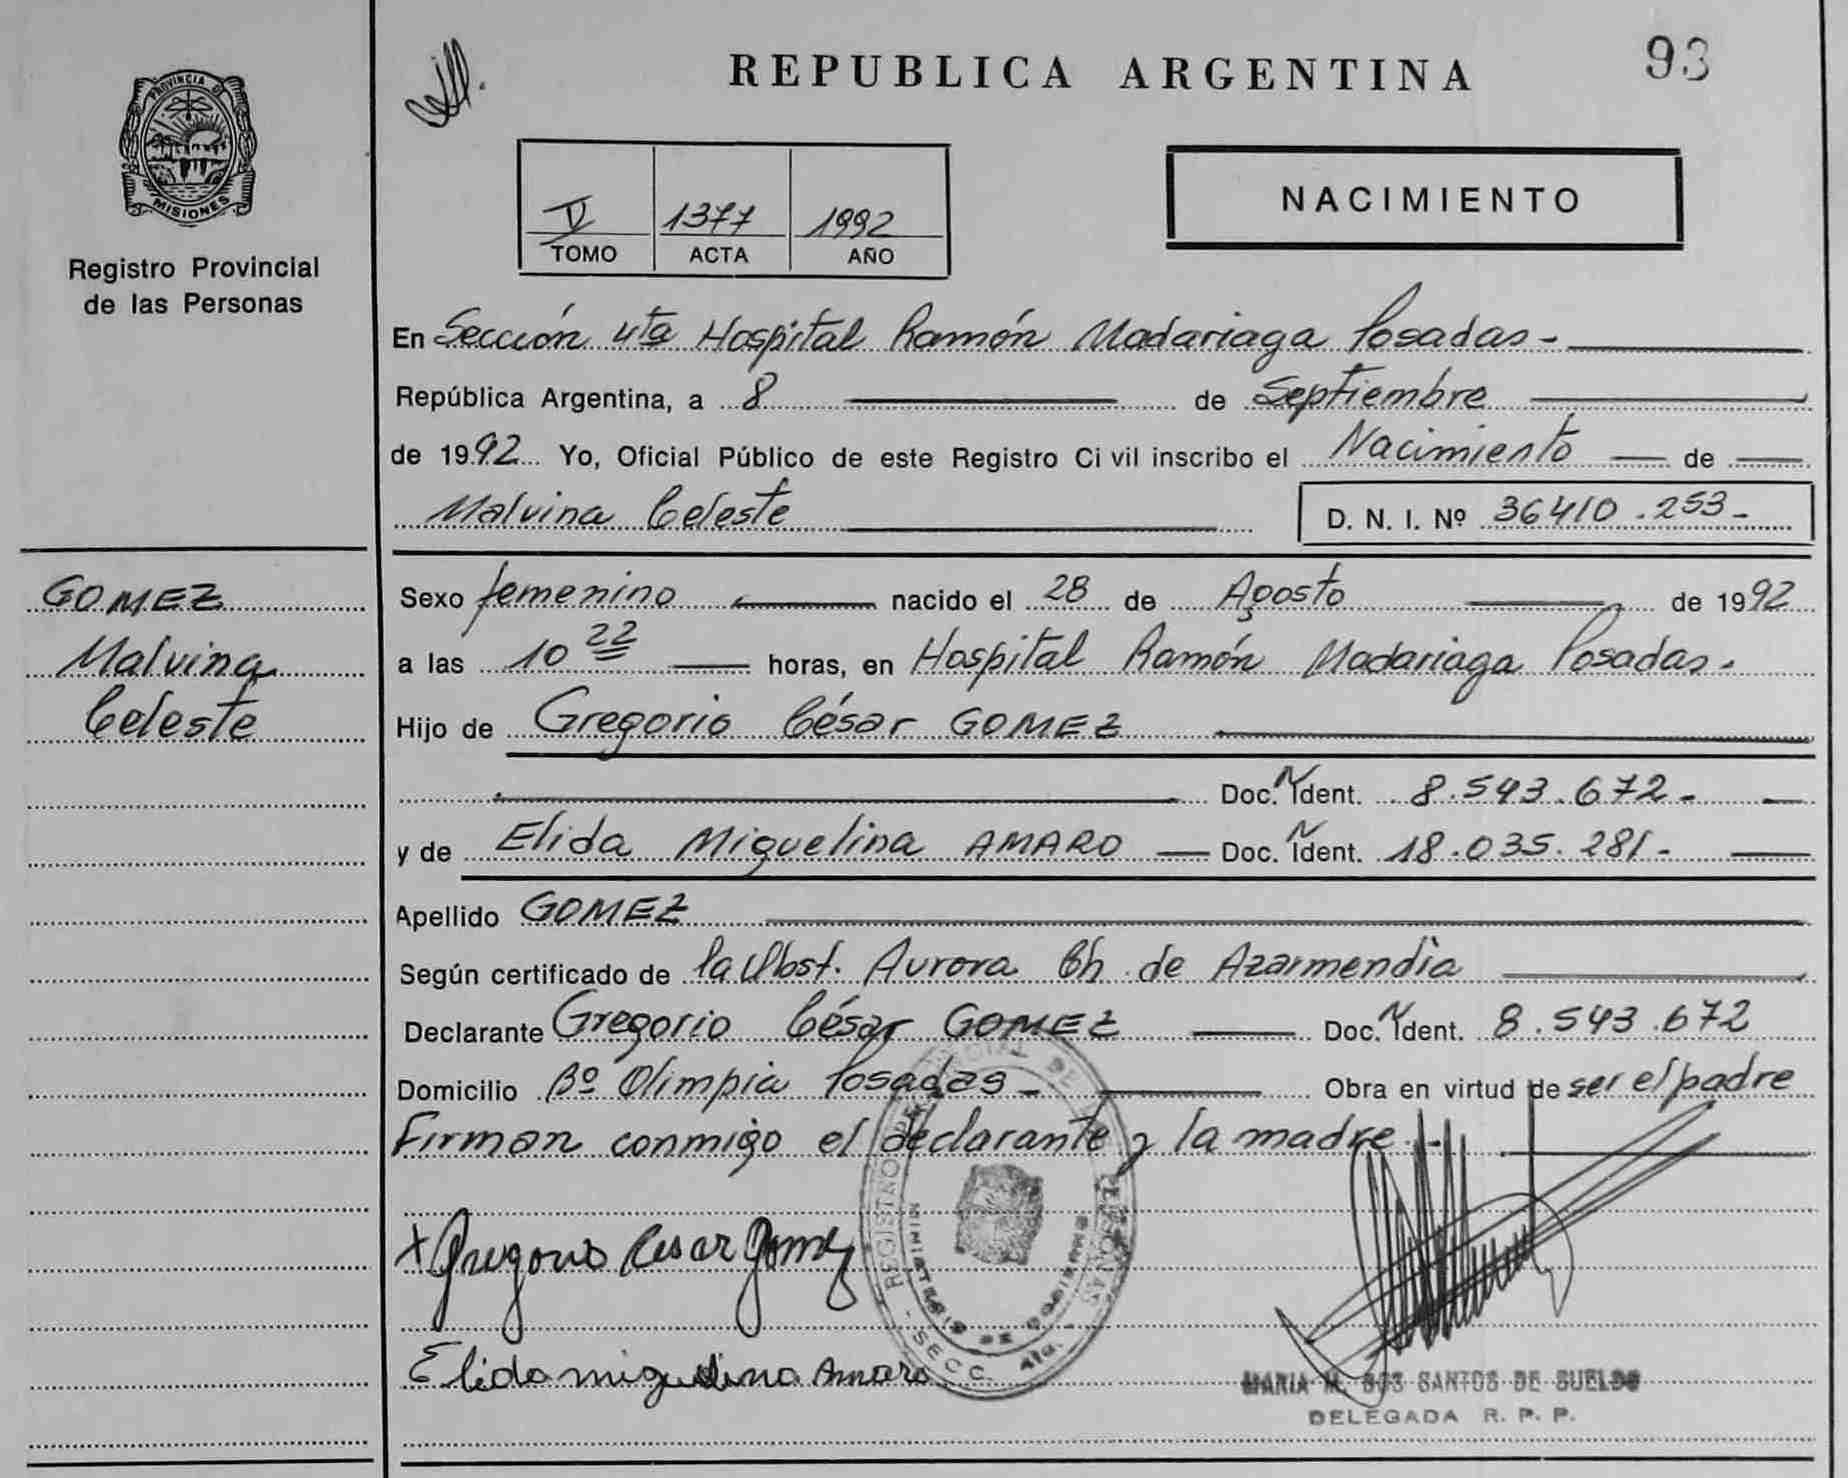 PROVINCIA D
MISIONES
Registro Provincial
de las Personas
GOMEZ
Malvina
Celeste
REPUBLICA ARGENTINA
93
V 1377 1992
TOMO ACTA AÑO
NACIMIENTO
En Sección 4ta Hospital Ramón Madariaga Posadas -
República Argentina, a 8 de Septiembre
de 1992 Yo, Oficial Público de este Registro Civil inscribo el Nacimiento de
Malvina Celeste D. N. I. Nº 36410.253-
Sexo femenino nacido el 28 de Agosto de 1992
a las 10 22 horas, en Hospital Ramón Madariaga Posadas.
Hijo de Gregorio César GOMEZ
Doc. N Ident. 8.543.672-
y de Elida Miguelina AMARO Doc. N Ident. 18.035.281-
Apellido GOMEZ
Según certificado de la Obst. Aurora Ch. de Azarmendia
Declarante Gregorio César GOMEZ Doc. N Ident. 8.543.672
Domicilio Bº Olimpia Posadas - Obra en virtud de ser el padre
Firman conmigo el declarante y la madre.-
x Gregorio Cesar Gomez
Elida miguelina Amaro
REGISTRO PERSONAS
MINISTERIO DE GOBIERNO
- SECC. 4ta. -
MARIA M. DOS SANTOS DE SUELDO
DELEGADA R. P. P.